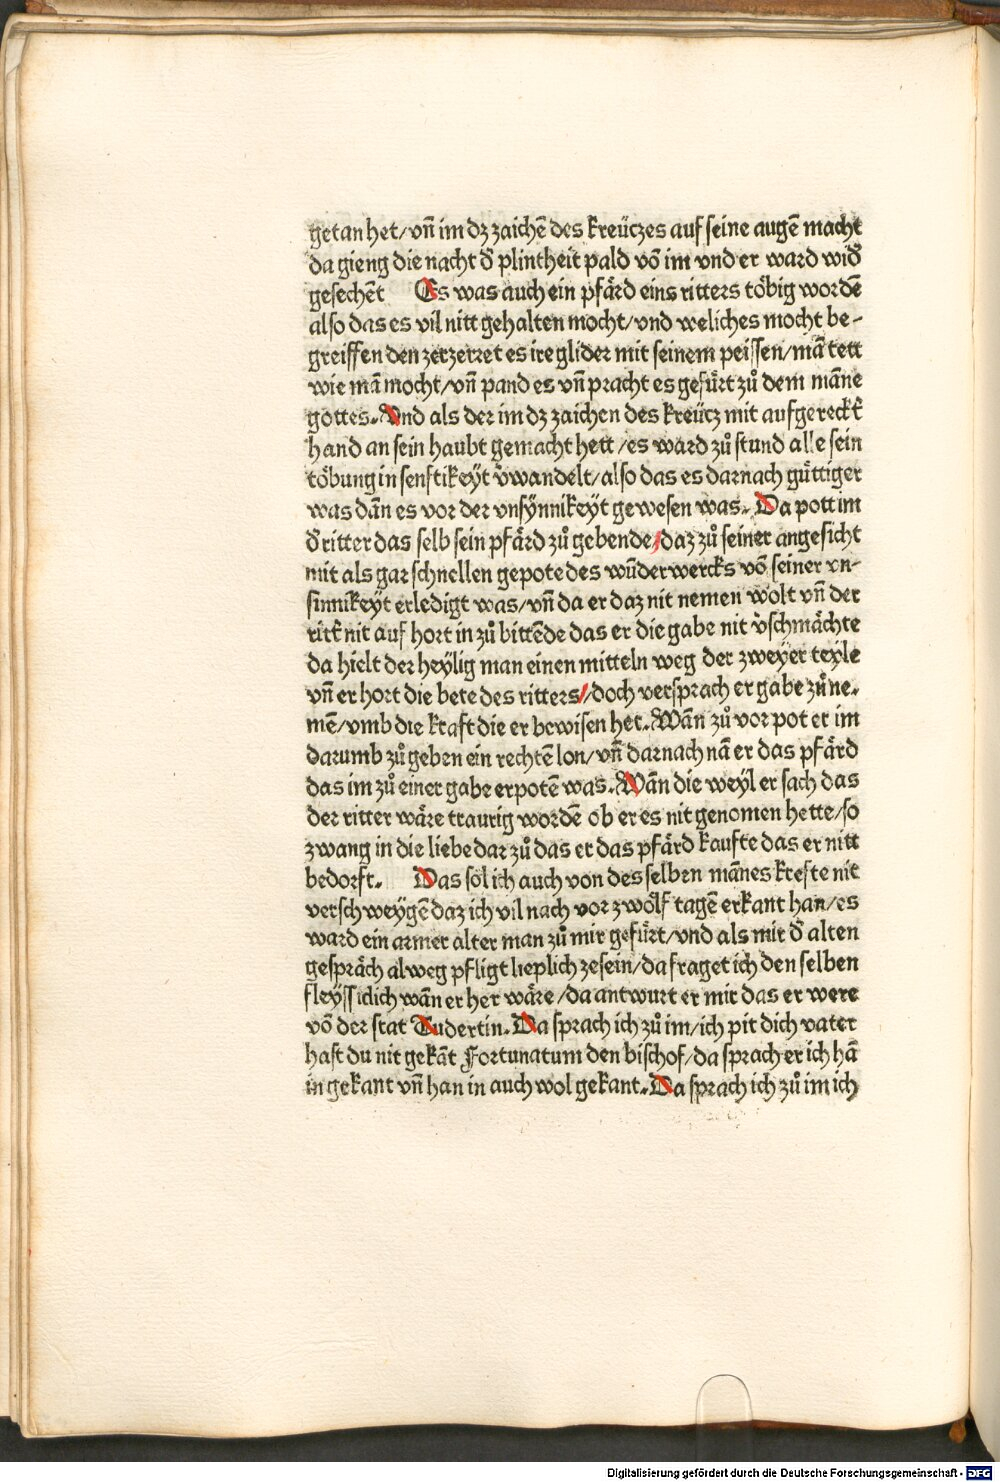 getan het/vn̄ im dz zaichē des kreüczes auf seine augē macht
da gieng die nacht d̄ plintheit pald vō im vnd er ward wid̄
gesechēt Es was auch ein pfärd eins ritters töbig wordē
also das es vil nitt gehalten mocht/vnd weliches mocht be-
greiffen den zerzerret es ire glider mit seinem peissen/mā tett
wie mā mocht/vn̄ pand es vn̄ pracht es gefürt zů dem māne
gottes. Vnd als der im dz zaichen des kreücz mit aufgereckt̄
hand an sein haubt gemacht hett/es ward zů stund alle sein
töbung in senftikeyt v̄wandelt/also das es darnach güttiger
was dān es vor der vnsynnikeyt gewesen was. Da pott im
d̄ ritter das selb sein pfärd zů gebende/daz zů seiner angesicht
mit als gar schnellen gepote des wūderwercks vō seiner vn-
sinnikeyt erledigt was/vn̄ da er daz nit nemen wolt vn̄ der
ritt̄ nit auf hort in zů bittēde das er die gabe nit v̄schmächte
da hielt der heylig man einen mitteln weg der zweyer teyle
vn̄ er hort die bete des ritters/doch versprach er gabe zů ne-
mē/vmb die kraft die er bewisen het. Wān zů vor pot er im
darumb zů geben ein rechtē lon/vn̄ darnach nā er das pfärd
das im zů einer gabe erpotē was. Wān die weyl er sach das
der ritter wäre traurig wordē ob er es nit genomen hette/so
zwang in die liebe dar zů das er das pfärd kaufte das er nitt
bedorft. Das sol ich auch von des selben mānes krefte nit
verschweygē daz ich vil nach vor zwölf tagē erkant han/es
ward ein armer alter man zů mir gefürt/vnd als mir d̄ alten
gespräch alweg pfligt lieplich ze sein/da fraget ich den selben
fleyssicklich wān er her wäre/da antwurt er mir das er were
vō der stat Tudertin. Da sprach ich zů im/ich pit dich vater
hast du nit gekāt Fortunatum den bischof/da sprach er ich hā
in gekant vn̄ han in auch wol gekant. Da sprach ich zů im ich
Digitalisierung gefördert durch die Deutsche Forschungsgemeinschaft - DFG